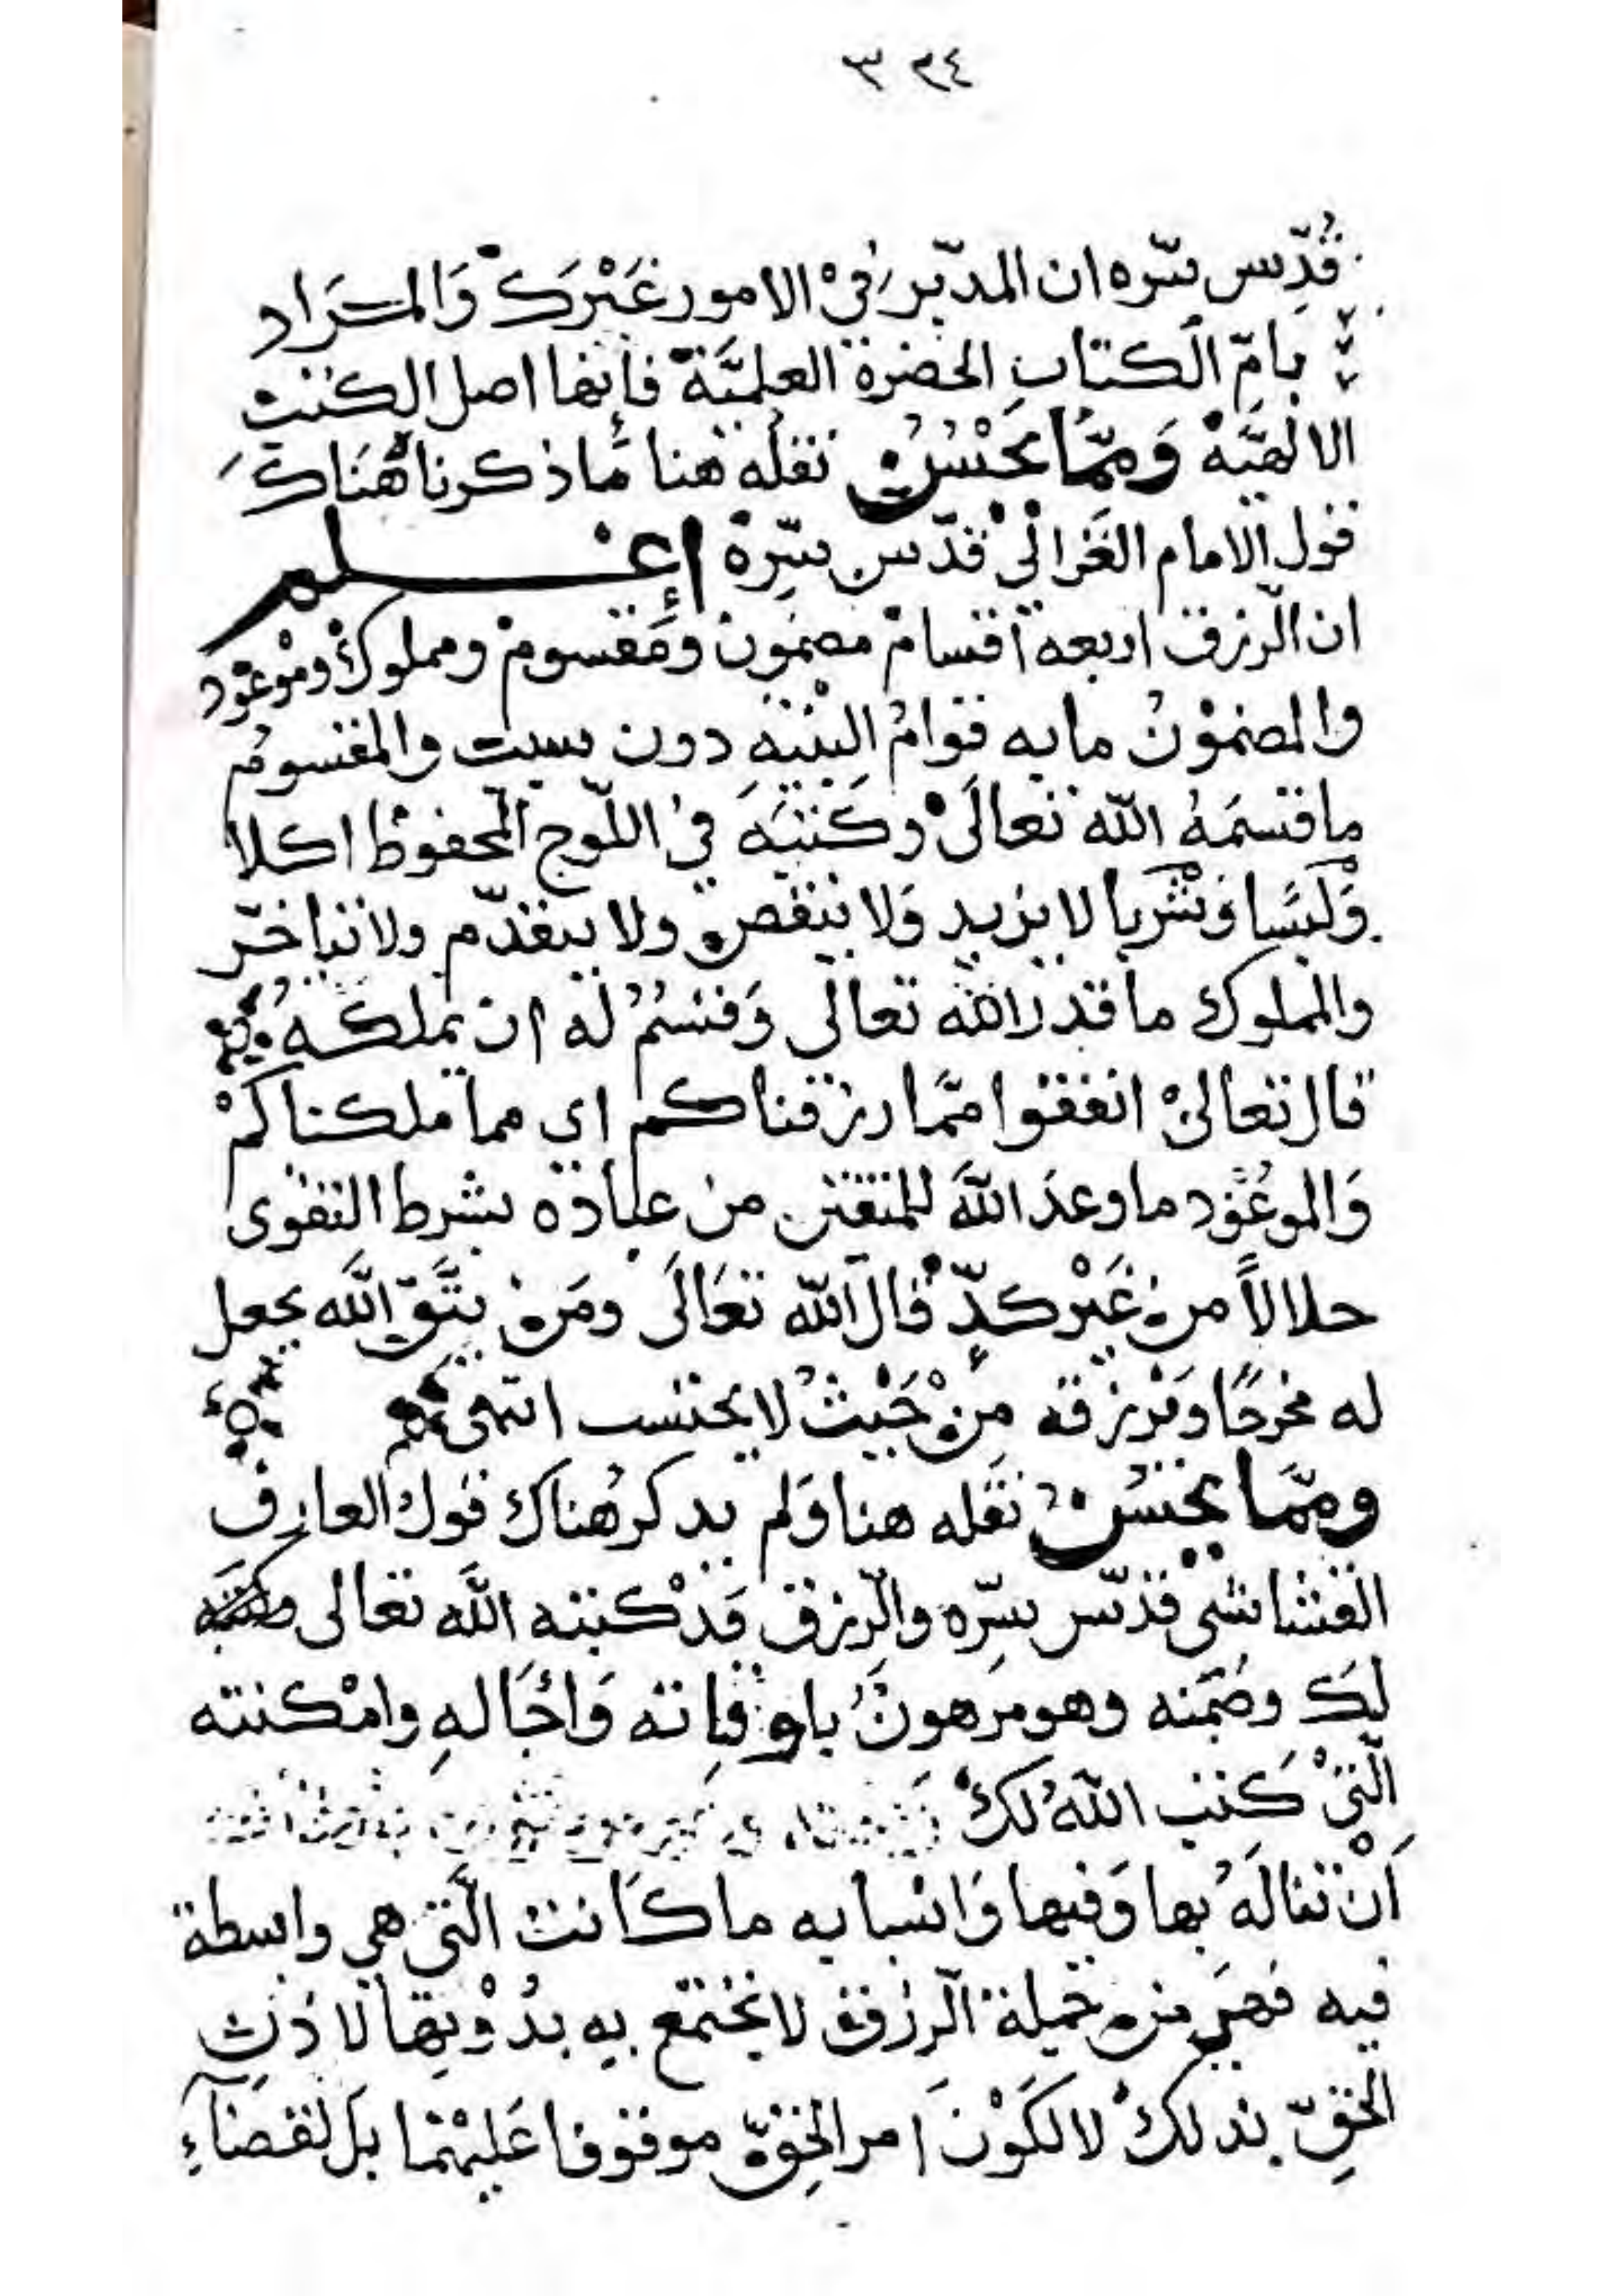 ٣٣٤
قُدِّس سّره ان المدبّر فيْ الامور غَيْرَكَ وَالمرَاد
بامّ الكتاب الحضرة العلميَّة فإنها اصل الكتب
الالهيَّة وَممَّا يَحْسُن نقلُه هنا مما ذكرنا هُنَاكَ
قول الامام الغَزاليْ قدّس سِّره إعـــلم
ان الّرزق اربعه أقسام مضمون ومَقسوم ومملوك وموعود
والمضموْنُ ما به قوامُ البنْيَهِ دون سبب والمقسومُ
ما قسَمَهُ اللّه تعالَى وكَتبَهَ فيْ اللّوح المحفوظ اكلا
وَلَبسًا وَشُربا لا يزيد وَلا ينقص ولا يتقدّم ولا يتأخّر
والمملوك ما قدر اللّه تعالى وَقسُمْ له ان يملكهُ
قال تعالىْ انفقوا ممَّا رزقناكم اي مما ملكناكمْ
وَالموعُوْد ما وعدَ اللَّهَ للمتقين من عباده بشرط التقوى
حلالاً من غَيْر كدٍّ قال اللّه تعَالَى ومَن يتَّق اللَّه يجعل
له مخرجًا وَيرزقه مِنْ حَيْثُ لا يحتسب انتهى
وممَّا يحسُن نقَله هنا وَلم يذكر هُناك قول العارف
القشاشي قدّس سّره والّرزق قَدْ كتبه اللَّه تعالى
لكَ وضَمنه وهو مرهونٌ باوقاته وَاجَاله وامْكنته
الّتيْ كَتب اللّهُ لكَ
اَنْ تنالَهُ بها وَفيها وَاسْبابه ما كَانت الَّتي هي واسطة
فيه فهيَ من جملة الّرزق لا يجْتمع به بدُوْنها لا ذنِ
الحقِّ بذلك لا لكَوْنَ امر الحقّ موقوفا عَليْهما بَل لقضَآءِ